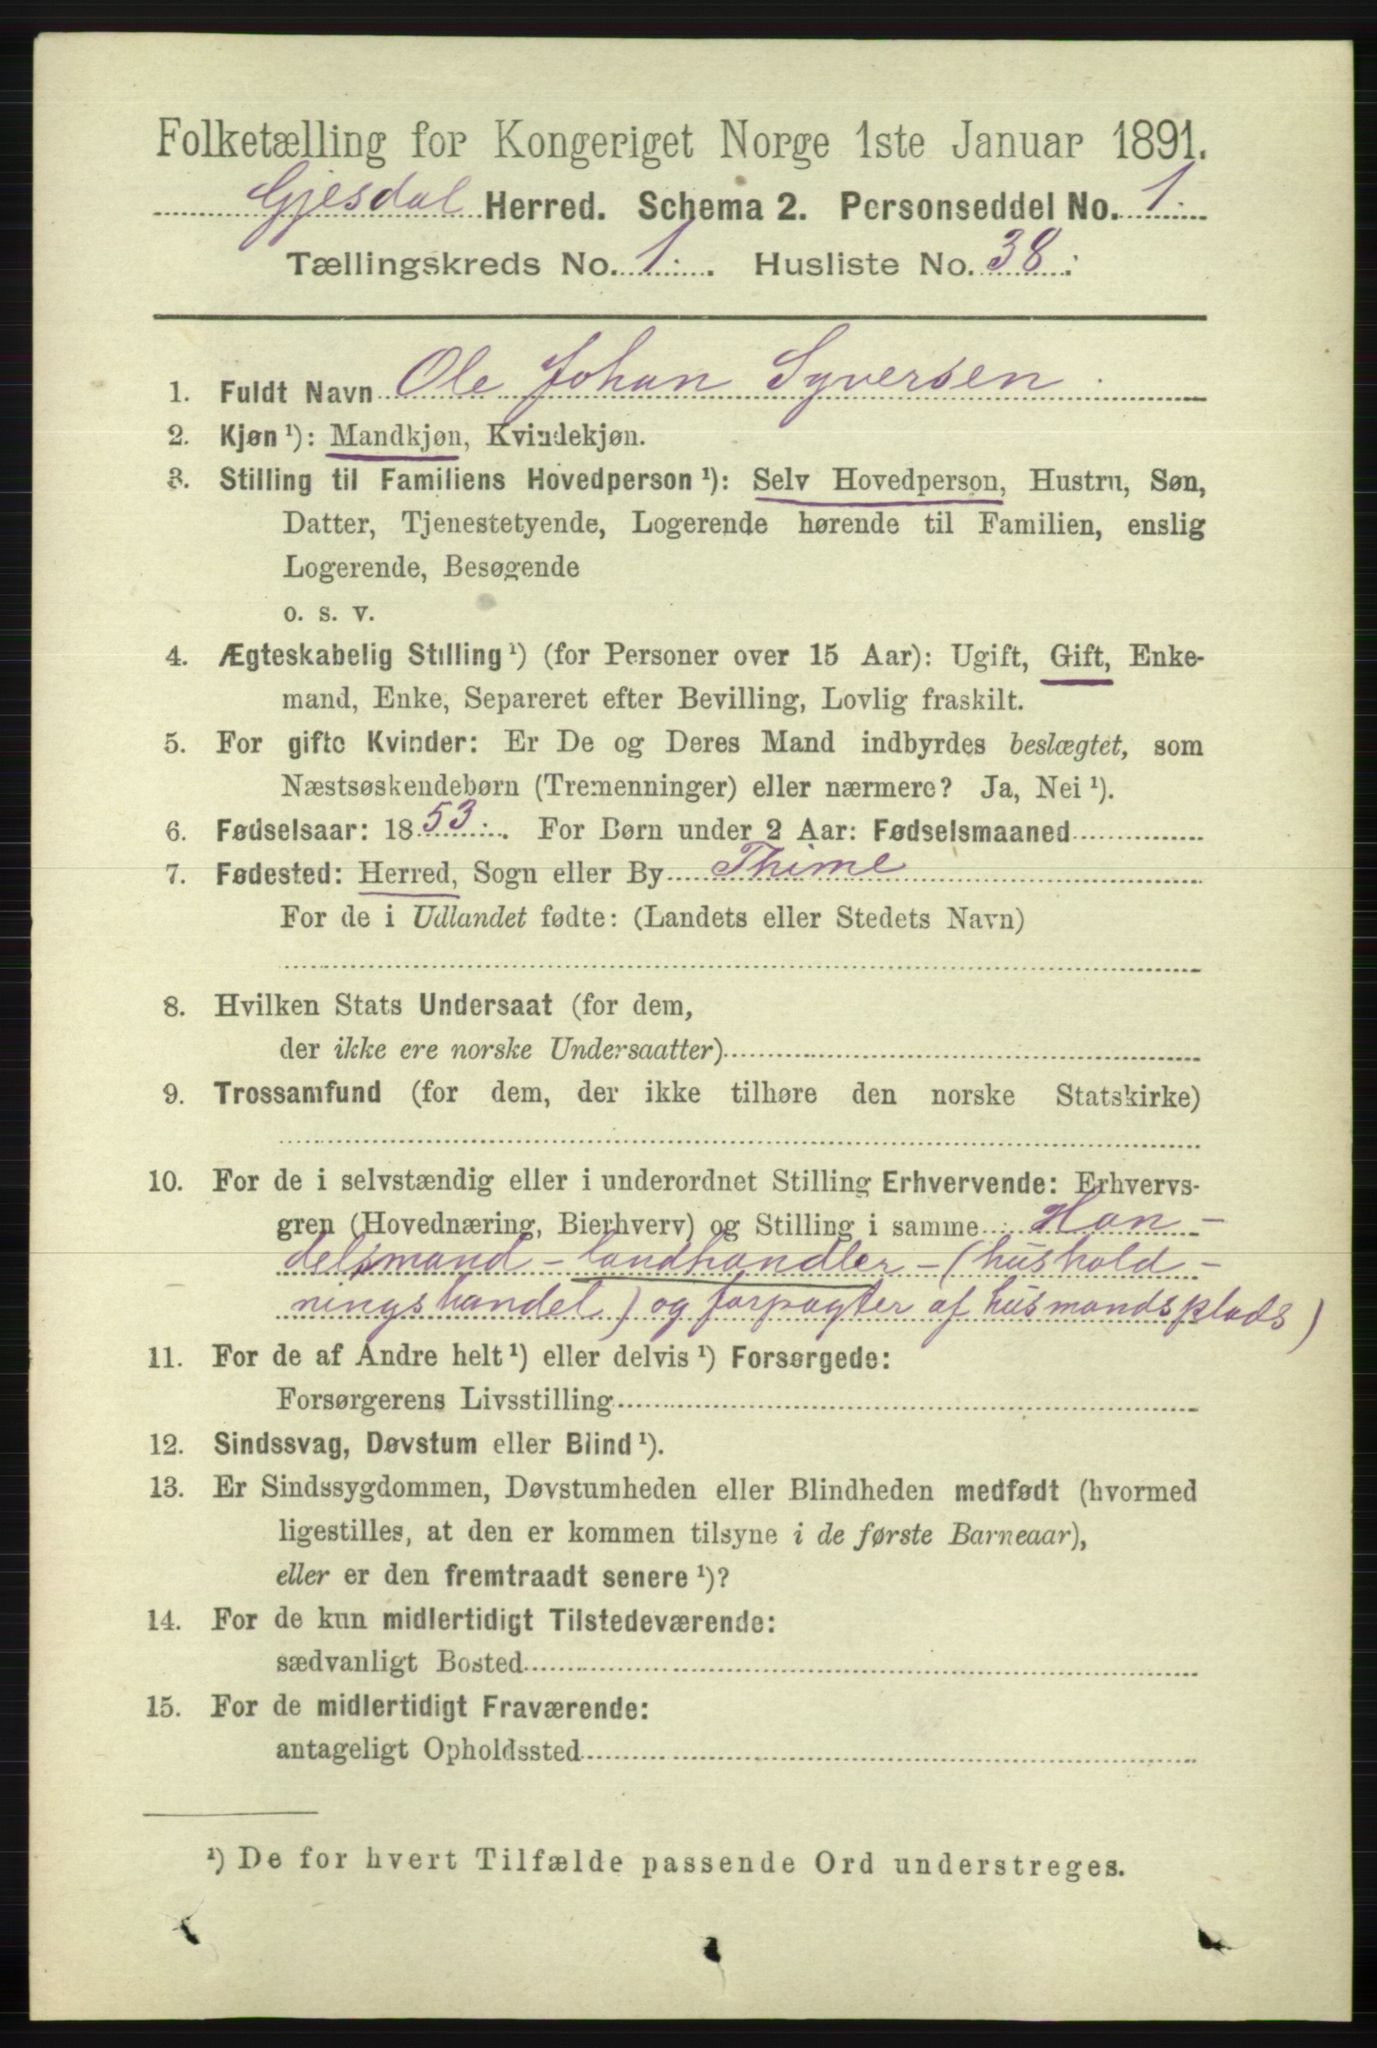 Folketælling for Kongeriget Norge 1ste Januar 1891.
Gjesdal Herred. Schema 2. Personseddel No. 1.
Tællingskreds No. 1. Husliste No. 38.
1. Fuldt Navn Ole Johan Syversen.
2. Kjøn ¹): Mandkjøn, Kvindekjøn.
3. Stilling til Familiens Hovedperson ¹): Selv Hovedperson, Hustru, Søn,
Datter, Tjenestetyende, Logerende hørende til Familien, enslig
Logerende, Besøgende
o. s. v.
4. Ægteskabelig Stilling ¹) (for Personer over 15 Aar): Ugift, Gift, Enke-
mand, Enke, Separeret efter Bevilling, Lovlig fraskilt.
5. For gifte Kvinder: Er De og Deres Mand indbyrdes beslægtet, som
Næstsøskendebørn (Tremenninger) eller nærmere? Ja, Nei ¹).
6. Fødselsaar: 1853. For Børn under 2 Aar: Fødselsmaaned
7. Fødested: Herred, Sogn eller By Thime
For de i Udlandet fødte: (Landets eller Stedets Navn)
8. Hvilken Stats Undersaat (for dem,
der ikke ere norske Undersaatter)
9. Trossamfund (for dem, der ikke tilhøre den norske Statskirke)
10. For de i selvstændig eller i underordnet Stilling Erhvervende: Erhvervs-
gren (Hovednæring, Bierhverv) og Stilling i samme Han-
delsmand - landhandler - (hushold-
ningshandel) og forpagter af husmandsplads)
11. For de af Andre helt ¹) eller delvis ¹) Forsørgede:
Forsørgerens Livsstilling
12. Sindssvag, Døvstum eller Blind ¹).
13. Er Sindssygdommen, Døvstumheden eller Blindheden medfødt (hvormed
ligestilles, at den er kommen tilsyne i de første Barneaar),
eller er den fremtraadt senere ¹)?
14. For de kun midlertidigt Tilstedeværende:
sædvanligt Bosted
15. For de midlertidigt Fraværende:
antageligt Opholdssted
¹) De for hvert Tilfælde passende Ord understreges.